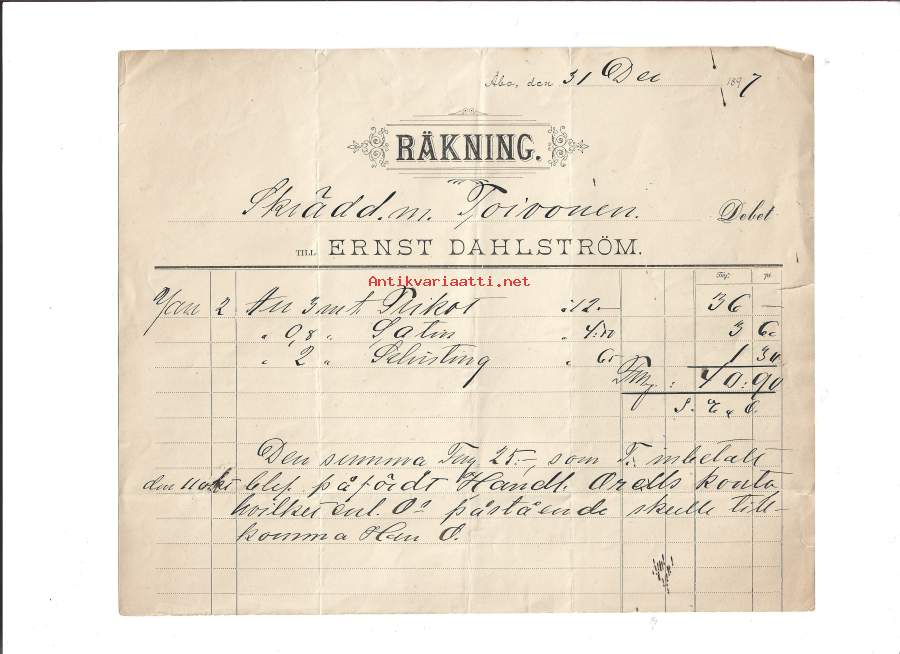 Åbo, den 31 Dec 1897
RÄKNING.
Skrädd. m. Toivonen. Debet
TILL ERNST DAHLSTRÖM.
Antikvariaatti.net
Fmf. pi
2 An 3 mt Trikot : 12.— 36 —
„ 0,8 „ Satin „ 4:50 3 60
„ 2 „ „ 65 1 30
Fmf : 40:90
S. E. & O.
Den summa Fmf 25.—, som T. inbetalt
den 11 okt blef påfördt Handl. Orells konto
hvilket enl. O:s påstående skulle till-
komma Herr O.